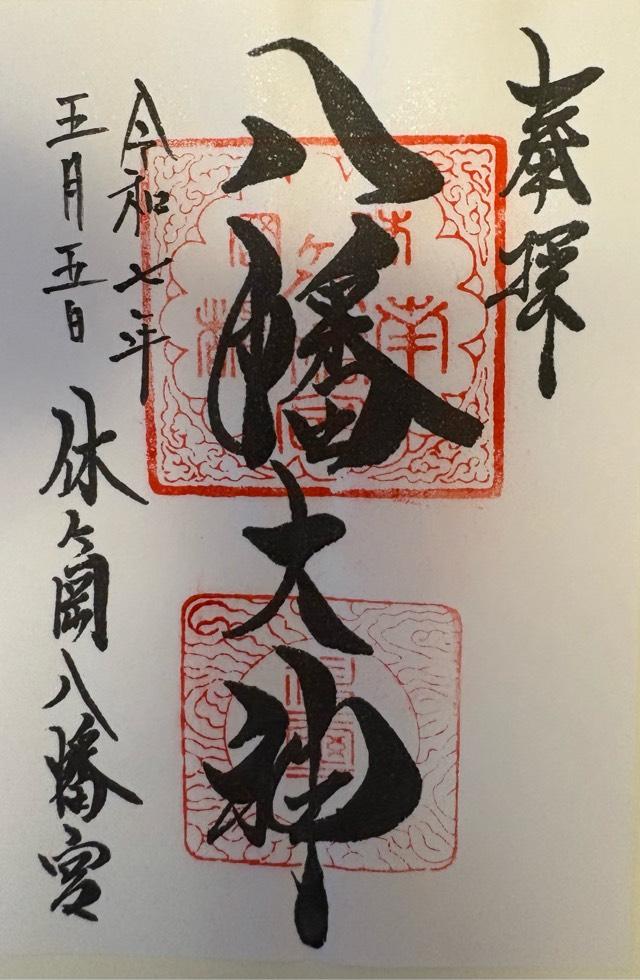 奉拝
八幡大神
令和七年
五月五日
休ヶ岡八幡宮